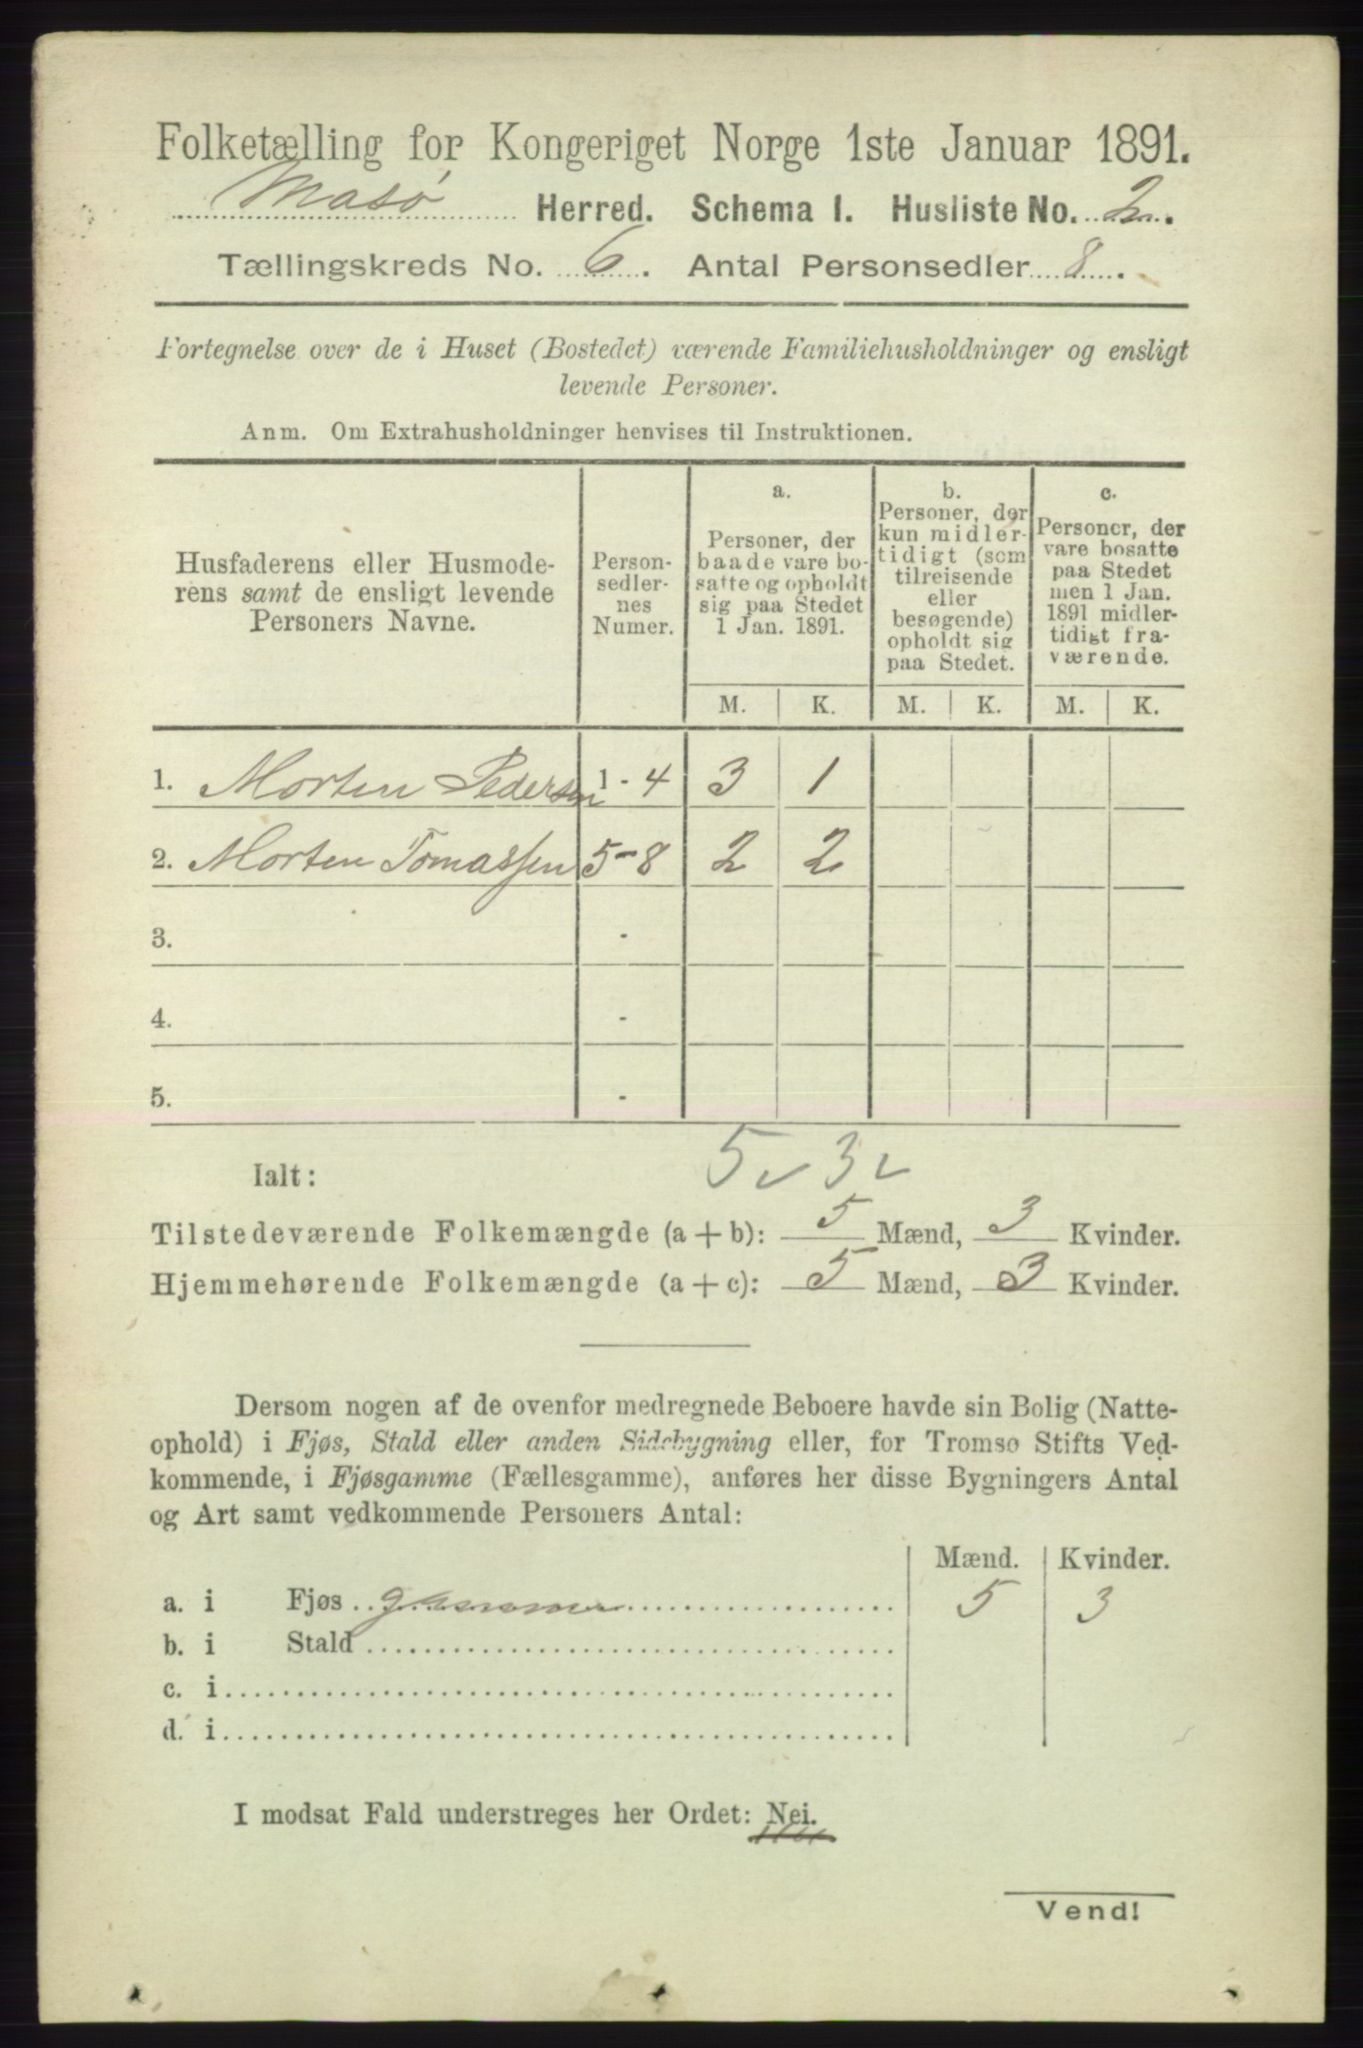 Folketælling for Kongeriget Norge 1ste Januar 1891.
Masø Herred. Schema I. Husliste No. 2.
Tællingskreds No. 6. Antal Personsedler 8.
Fortegnelse over de i Huset (Bostedet) værende Familiehusholdninger og ensligt
levende Personer.
Anm. Om Extrahusholdninger henvises til Instruktionen.
Husfaderens eller Husmode-
rens samt de ensligt levende
Personers Navne.
Person-
sedler-
nes
Numer.
a.
Personer, der
baade vare bo-
satte og opholdt
sig paa Stedet
1 Jan. 1891.
b.
Personer, der
kun midler-
tidigt (som
tilreisende
eller
besøgende)
opholdt sig
paa Stedet.
c.
Personer, der
vare bosatte
paa Stedet
men 1 Jan.
1891 midler-
tidigt fra-
værende.
M. K. M. K. M. K.
1. Morten Pedersen 1-4 3 1
2. Morten Tomassen 5-8 2 2
3. -
4. -
5. -
5 3
Ialt:
Tilstedeværende Folkemængde (a + b): 5 Mænd, 3 Kvinder.
Hjemmehørende Folkemængde (a + c): 5 Mænd, 3 Kvinder.
Dersom nogen af de ovenfor medregnede Beboere havde sin Bolig (Natte-
ophold) i Fjøs, Stald eller anden Sidebygning eller, for Tromsø Stifts Ved-
kommende, i Fjøsgamme (Fællesgamme), anføres her disse Bygningers Antal
og Art samt vedkommende Personers Antal:
Mænd. Kvinder.
a. i Fjøs gamme 5 3
b. i Stald
c. i
d. i
I modsat Fald understreges her Ordet: Nei.
Vend!